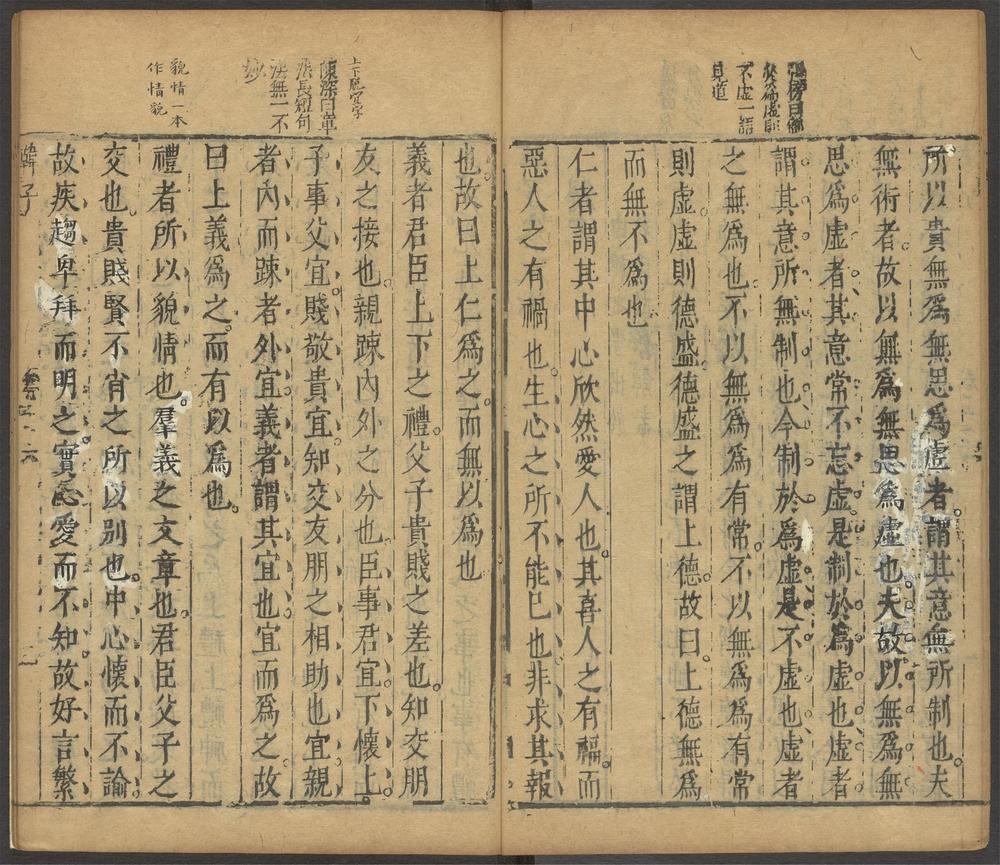 不虛一語
見道
所以貴無爲無思爲虛者謂其意無所制也夫
無術者故以無爲無思爲虛也夫故以無爲無
思爲虛者其意常不忘虛是制於爲虛也虛者
謂其意所無制也今制於爲虛是不虛也虛者
之無爲也不以無爲爲有常不以無爲爲有常
則虛虛則德盛德盛之謂上德故曰上德無爲
而無不爲也
仁者謂其中心欣然愛人也其喜人之有福而
惡人之有禍也生心之所不能已也非求其報
上下應宜字
陳深曰章
法長短句
法無一不
妙
貌情一本
作情貌
也故曰上仁爲之而無以爲也
義者君臣上下之禮父子貴賤之差也知交朋
友之接也親踈內外之分也臣事君宜下懷上
子事父宜賤敬貴宜知交友朋之相助也宜親
者內而踈者外宜義者謂其宜也宜而爲之故
曰上義爲之而有以爲也
禮者所以貌情也羣義之文章也君臣父子之
交也貴賤賢不肖之所以别也中心懷而不諭
故疾趨卑拜而明之實心愛而不知故好言繁
韓子